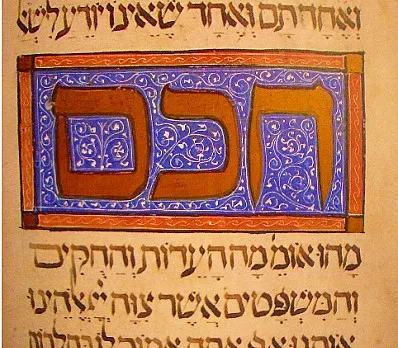 ואחד תם ואחד שאינו יודע
חכם
מהו אומ' מה העדות והחקים
והמשפטים אשר צוה ייי אלהינו
אותנו אף אתה אמור לו כהלכות